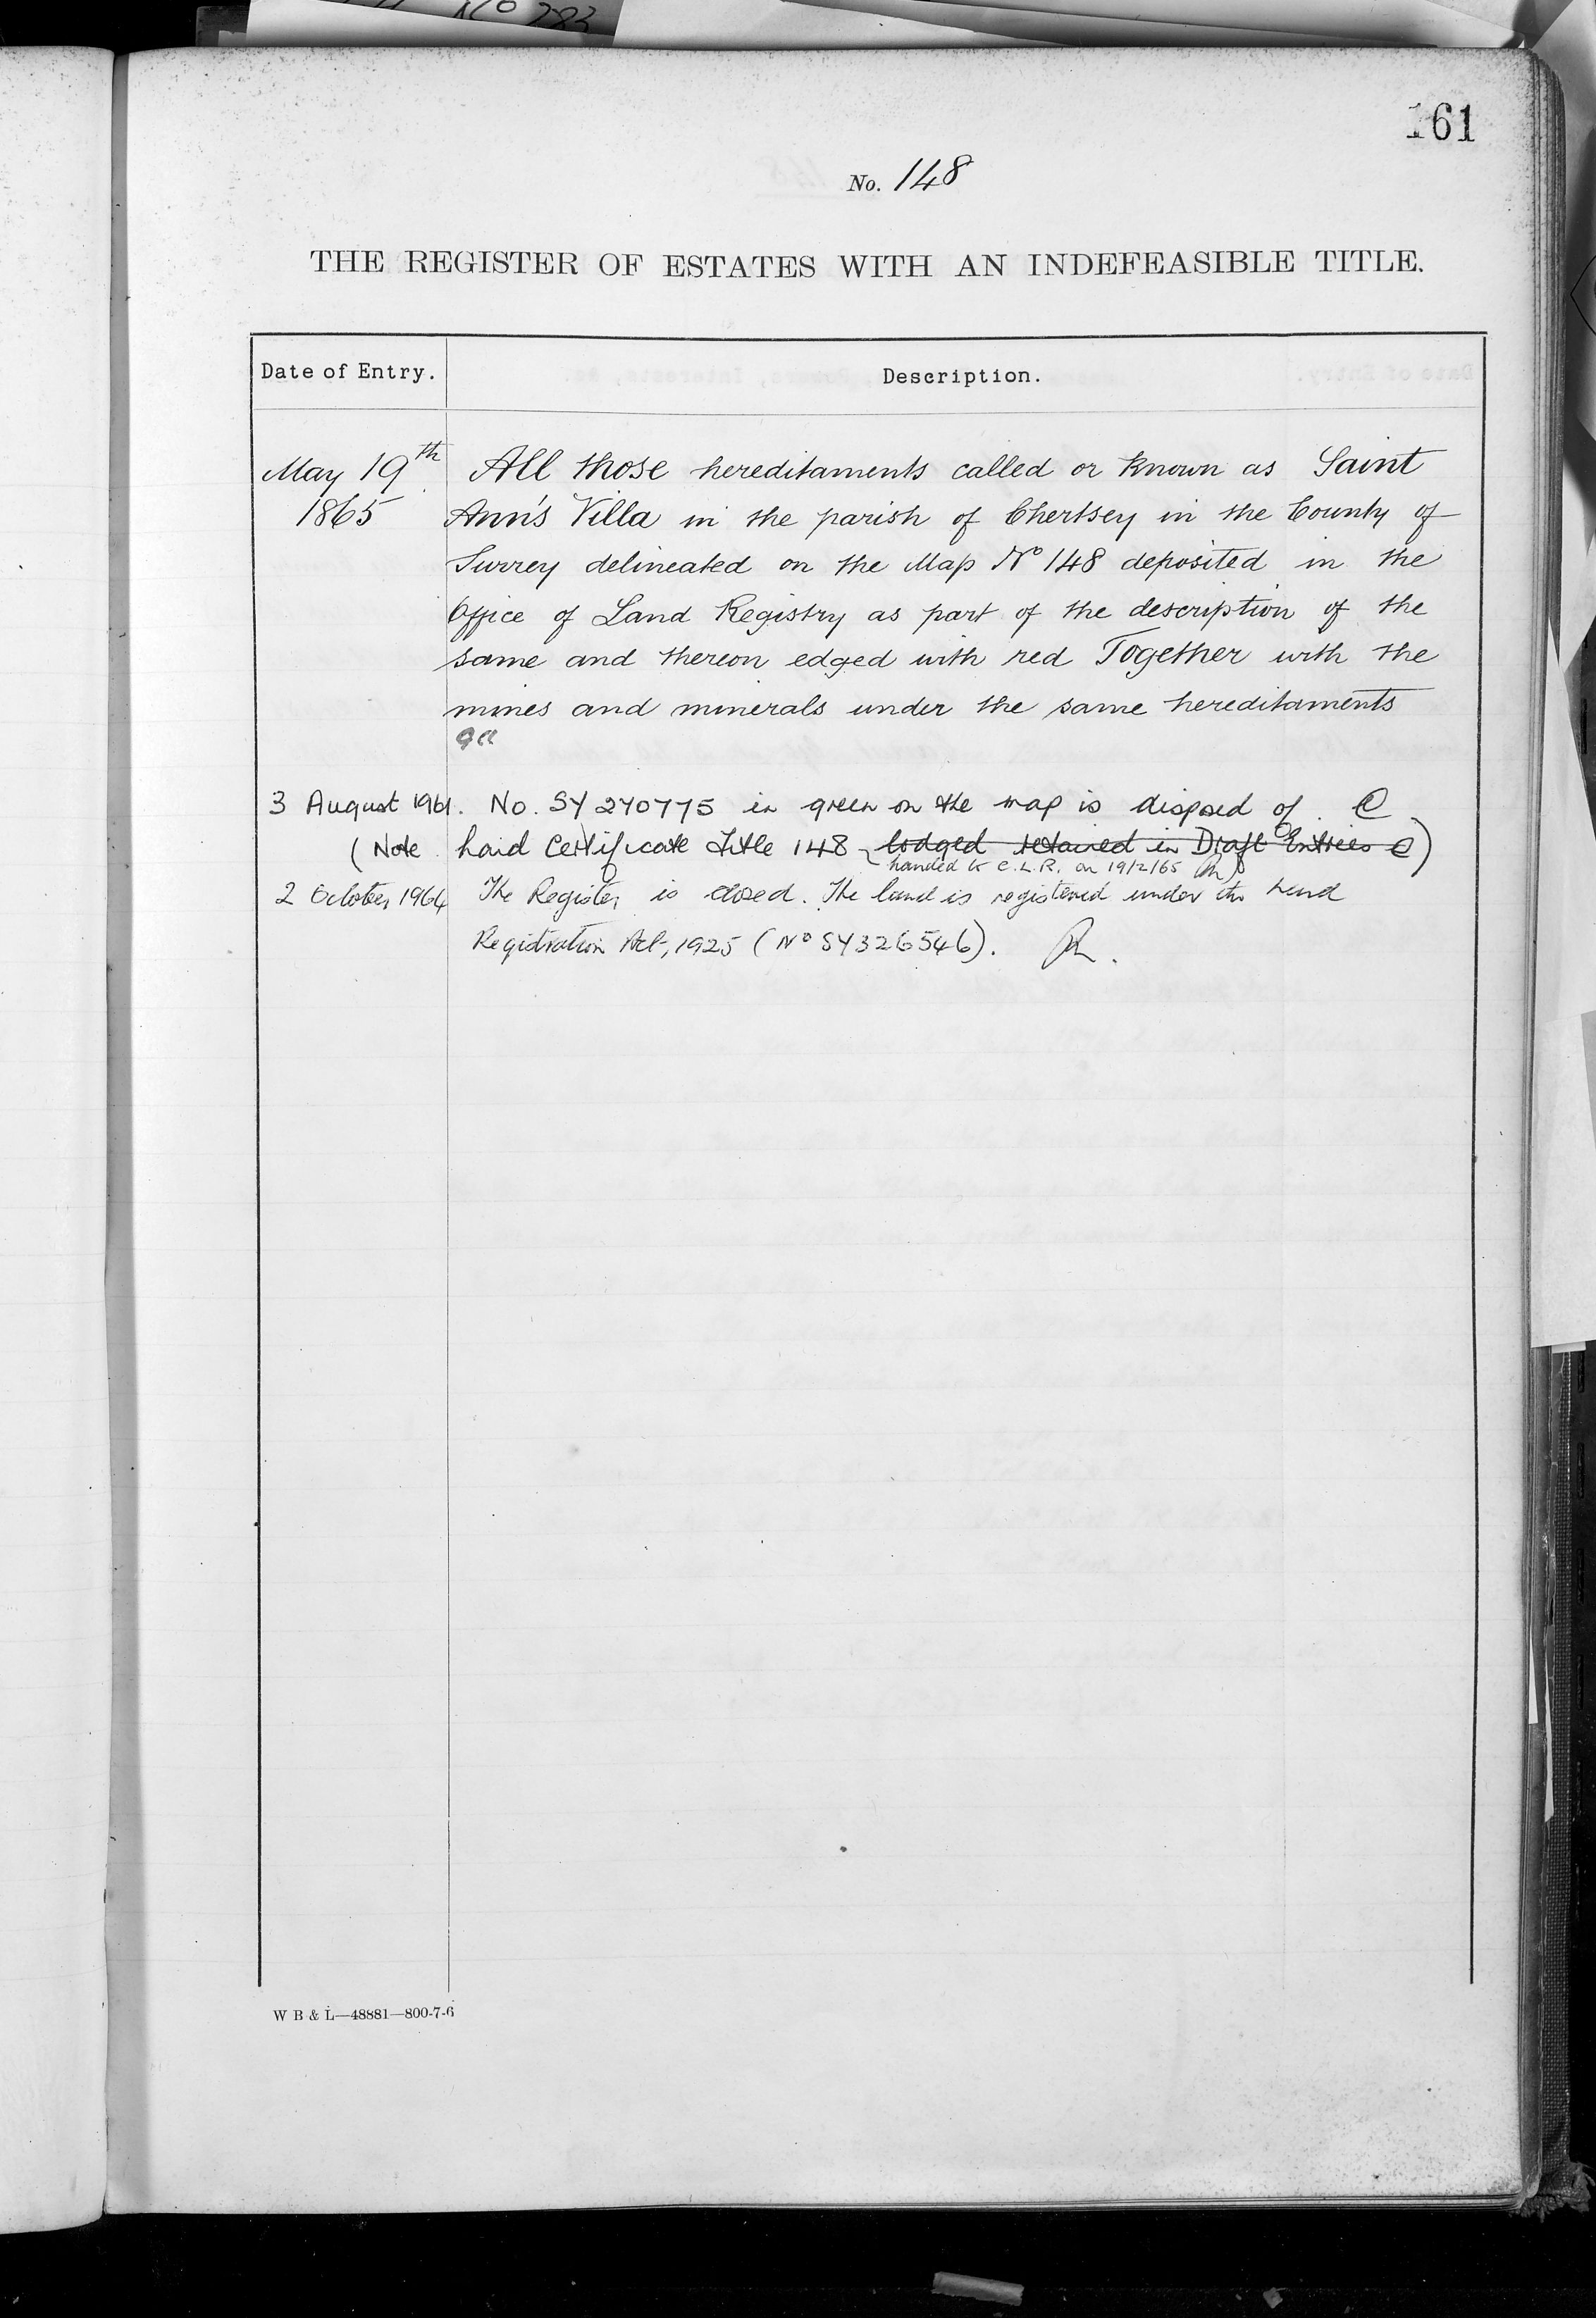 No 783
161
No. 148
THE REGISTER OF ESTATES WITH AN INDEFEASIBLE TITLE.
Date of Entry. Description.
May 19th All those hereditaments called or known as Saint
1865 Ann's Villa in the parish of Chertsey in the County of
Surrey delineated on the Map No 148 deposited in the
Office of Land Registry as part of the description of the
same and thereon edged with red Together with the
mines and minerals under the same hereditaments
3 August 1961. No. SY 270775 in green on the map is disposed of. C
(Note Land Certificate Title 148 lodged retained in Draft Entries C)
handed to C.L.R. on 19/2/65
2 October 1964 The Register is closed. The land is registered under the Land
Registration Act, 1925 (No SY326546).
W B & L—48881—800-7-6